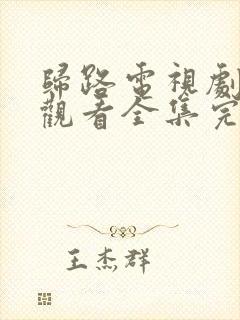 歸路電視劇
觀看全集完
王杰群